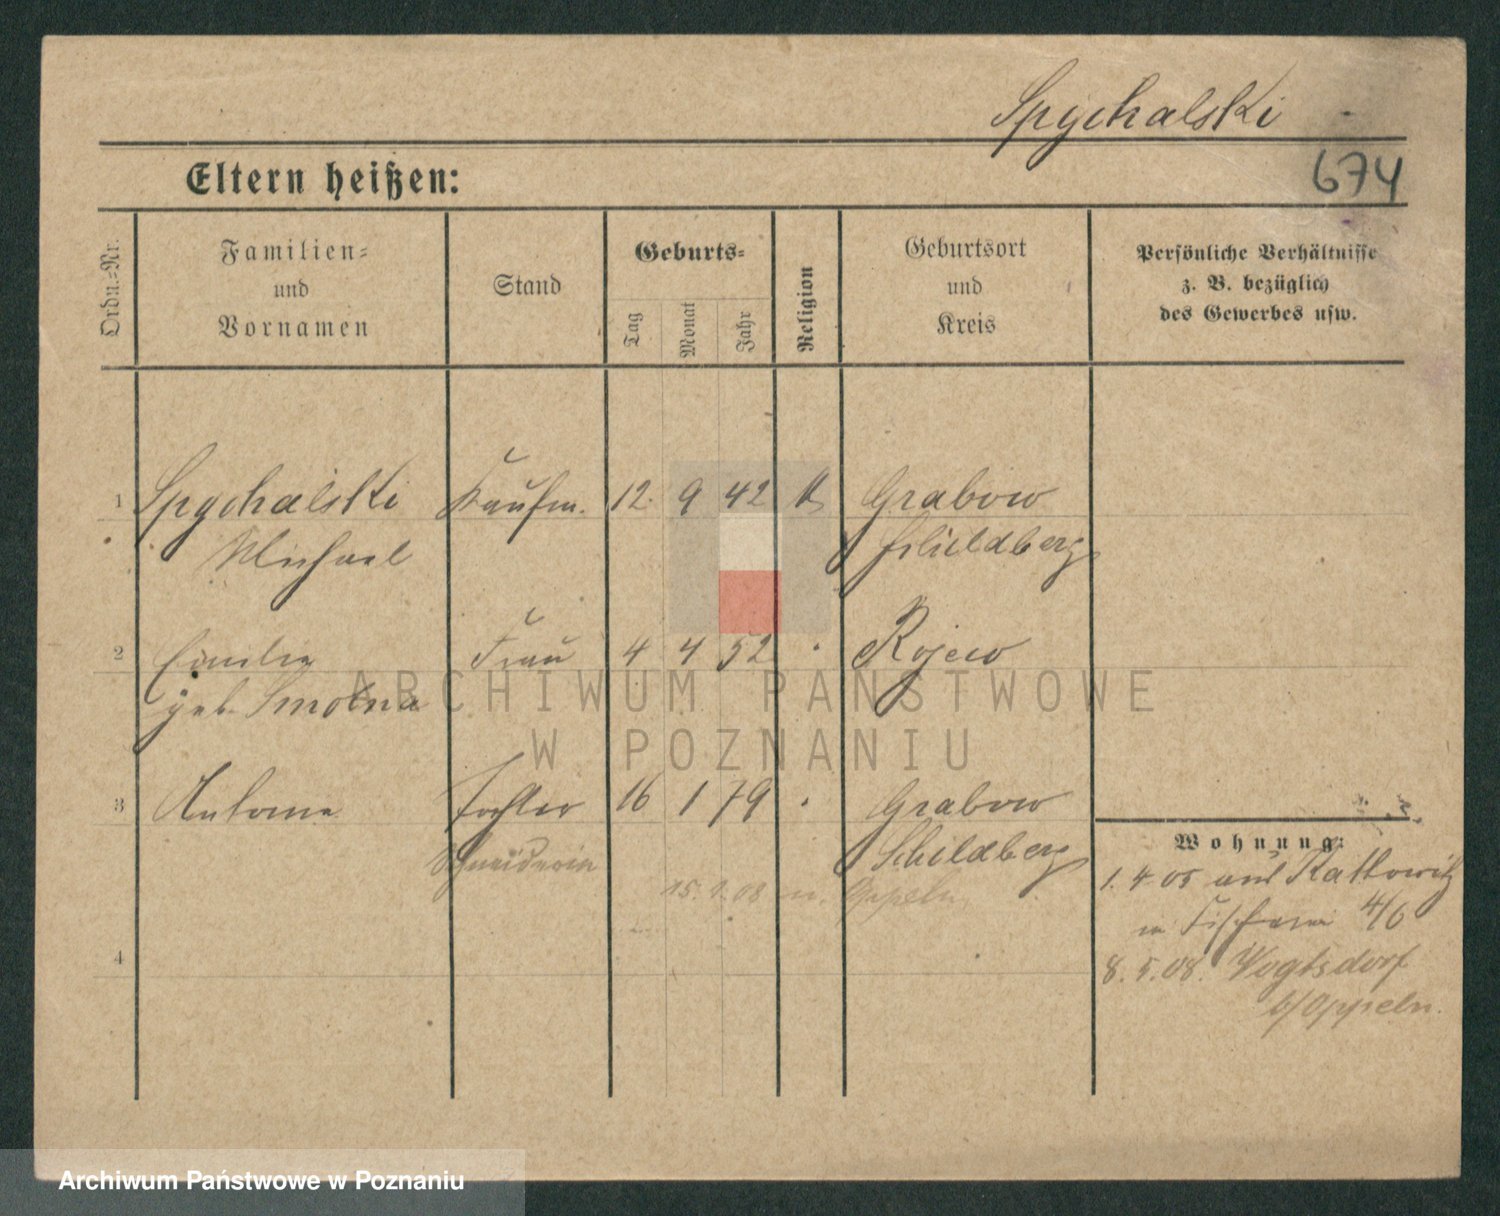 Spychalski
674
Eltern heißen:
Ordn.=Nr.
Familien=
und
Vornamen
Stand
Geburts=
Tag
Monat
Jahr
Religion
Geburtsort
und
Kreis
Persönliche Verhältnisse
z. B. bezüglich
des Gewerbes usw.
1 Spychalski Kaufm. 12. 9 42 K Grabow
Michael Schildberg
2 Emilie Frau 4 4 52 Rojew
geb. Smolna
3 Antonie Tochter 16 1 79 Grabow
Schneiderin Schildberg
15. 1. 08 n. Oppeln
4
Wohnung:
1. 4 05 aus Kattowitz
4/6
8. 5. 08. Vogtsdorf
b/Oppeln.
ARCHIWUM PAŃSTWOWE
W POZNANIU
Archiwum Państwowe w Poznaniu